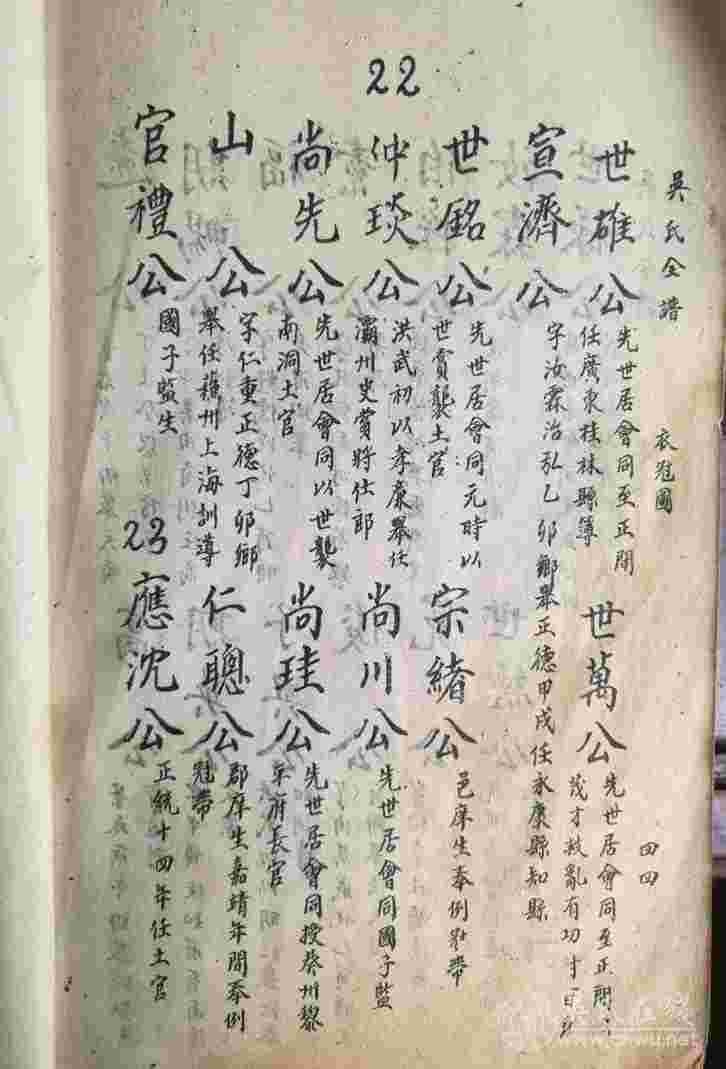 22
吳氏全譜 衣冠圖 四四
世雄公 先世居會同至正間
任廣東桂林縣簿
世萬公 先世居會同至正間
茂才救亂有功
宣濟公 字汝霖治弘乙卯鄉舉正德甲戌任永康縣知縣
世銘公 先世居會同元時以
世賞襲土官
宗緒公 邑庠生奉例冠帶
仲琰公 洪武初以孝廉舉任
灞州史賞將仕郎
尚川公 先世居會同國子監
尚先公 先世居會同以世襲
南洞土官
尚珪公 先世居會同授葵州黎
平府長官
山公 字仁重正德丁卯鄉
舉任蘓州上海訓導
仁聰公 郡庠生嘉靖年間奉例
冠帶
官禮公 國子監生
23
應沈公 正統十四年任土官